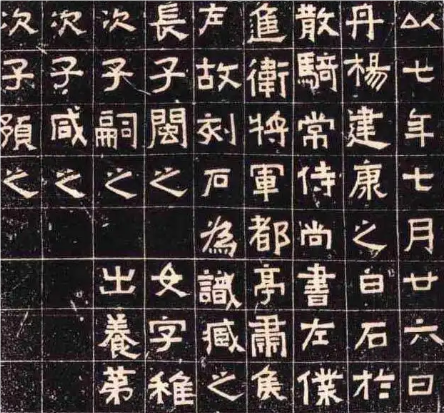 以七年七月廿六日
丹楊建康之白石於
散騎常侍尚書左僕
進衛將軍都亭肅侯
左故刻石為識臧之
長子閩之 女字稚
次子嗣之 出養第
次子咸之
次子預之